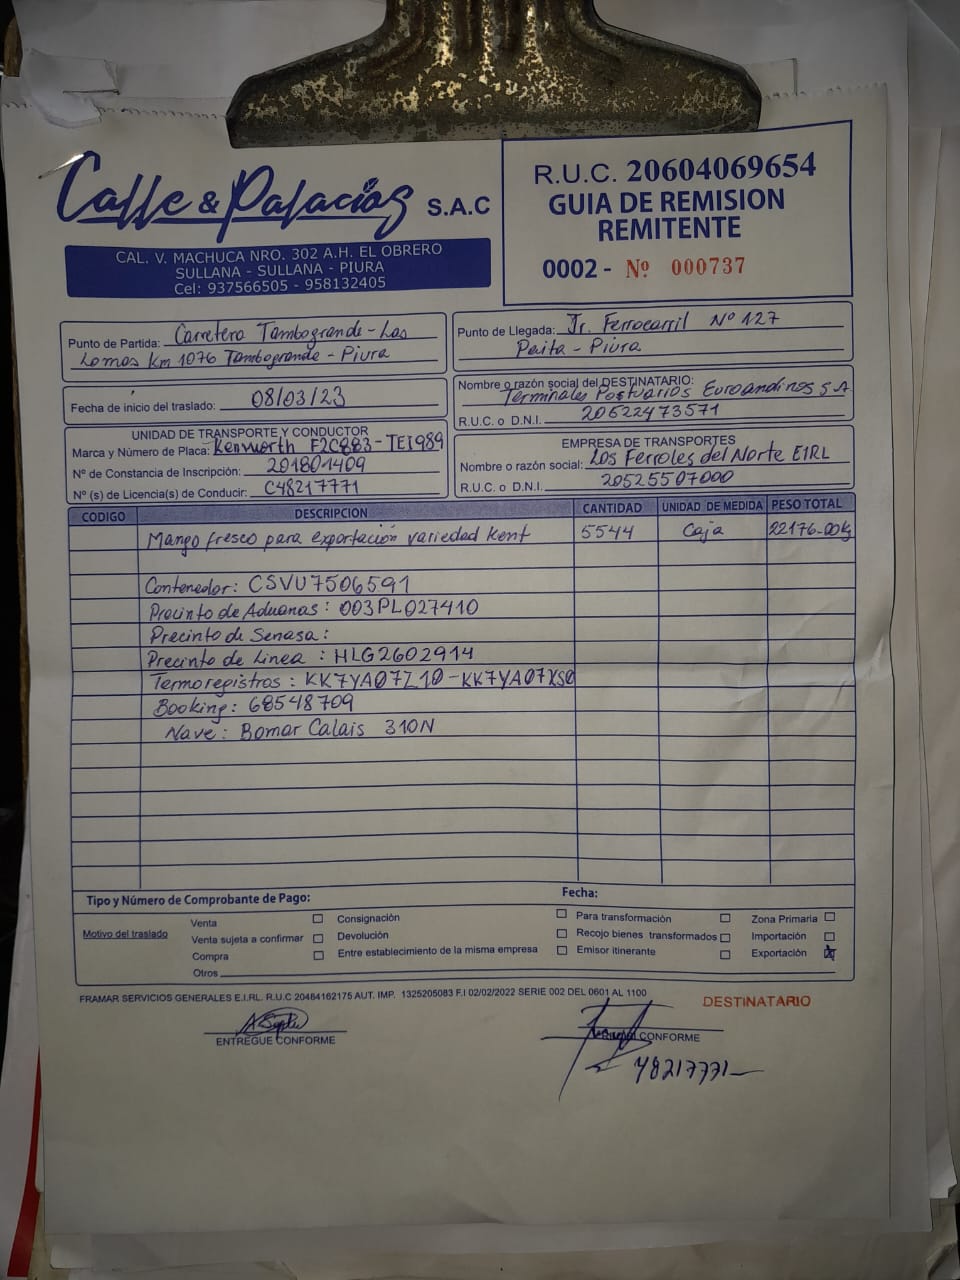 Calle & Palacios S.A.C
CAL. V. MACHUCA NRO. 302 A.H. EL OBRERO
SULLANA - SULLANA - PIURA
Cel: 937566505 - 958132405
R.U.C. 20604069654
GUIA DE REMISION
REMITENTE
0002 - Nº 000737
Punto de Partida: Carretera Tambogrande - Las
Lomas Km 1076 Tambogrande - Piura
Punto de Llegada: Jr. Ferrocarril Nº 127
Paita - Piura
Fecha de inicio del traslado: 08/03/23
Nombre o razón social del DESTINATARIO:
Terminales Portuarios Euroandinos S A
R.U.C. o D.N.I. 20522473571
UNIDAD DE TRANSPORTE Y CONDUCTOR
Marca y Número de Placa: Kenworth F2C883-TEI989
Nº de Constancia de Inscripción: 201801409
Nº (s) de Licencia(s) de Conducir: C48217771
EMPRESA DE TRANSPORTES
Nombre o razón social: Los Ferroles del Norte EIRL
R.U.C. o D.N.I. 20525507000
CODIGO DESCRIPCION CANTIDAD UNIDAD DE MEDIDA PESO TOTAL
Mango fresco para exportación variedad Kent 5544 Caja 22176.00kg
Contenedor: CSVU7506591
Precinto de Aduanas: 003PL027410
Precinto de Senasa:
Precinto de Linea : HLG2602914
Termoregistros : KK7YA07Z10-KK7YA07XS0
Booking: 68548709
Nave: Bomar Calais 310N
Tipo y Número de Comprobante de Pago: Fecha:
Motivo del traslado
Venta
Venta sujeta a confirmar
Compra
Otros
Consignación
Devolución
Entre establecimiento de la misma empresa
Para transformación
Recojo bienes transformados
Emisor itinerante
Zona Primaria
Importación
Exportación
FRAMAR SERVICIOS GENERALES E.I.RL. R.U.C 20484162175 AUT. IMP. 1325205083 F.I 02/02/2022 SERIE 002 DEL 0601 AL 1100
DESTINATARIO
ENTREGUE CONFORME
CONFORME
48217771